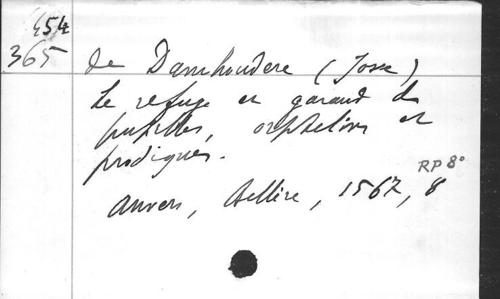 454
365
de Damhoudere (Josse)
Le refuge et garand des
pupilles, orphelins et
prodigues.
RP 8°
Anvers, Bellère, 1567, 8